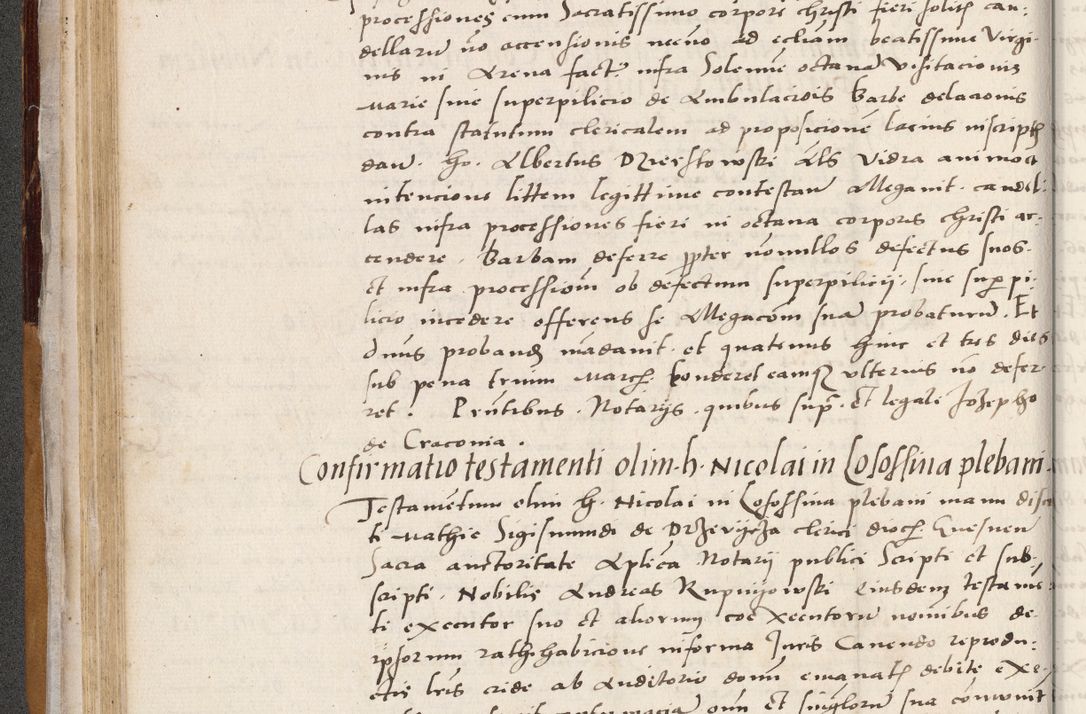 processiones cum Sacratissimo corpore christi fieri solitis can-
dellarum non accensionis necnon ad eccliam beatissime Virgi-
nis in Arena fact: infra Solemne octavam Visitacionis
Marie sine superpilicio de Ambulacrois Barbe delacionis
contra statutum clericalem ad proposicionem lacius inscriptis
dam. ho. Albertus Dzierstowski Als Vidra animo et
intencione littem legittime contestan Allegavit. candel-
las infra processiones fieri in octava corporis christi ac-
cendere. Barbam deferre ppter nonnullos defectus suos
et infra processionem ob defectum superpilicii, sine sup pi-
licio incedere offerens se Allegacom suam probaturum. Et
dnus probandum mandavit et quatenus hinc et tres dies
sub pena trium March. tonderet eamque ulterius non defer-
ret. Prntibus. Notarijs. quibus supra. et legale Josepho
de Cracovia.
Confirmatio testamenti olim h. Nicolai in Lososssina plebani
Testamentum olim h. Nicolai in Lososssina plebani manu discre
ti Mathie Sigismundi de Drzevijcza clerici dioces. Gnesnen
Sacra auctoritate Aplica Notarij publici Scripti et sub-
scripti. Nobilis Andreas Rupnijowski Eiusdem testamen-
ti executor suo et aliorum coexecutorum nominibus de
ipsorum rathihabicione in forma Juris Cavendo reprodu-
ctis lris cride ab Auditorio domini emanatis debite exe-